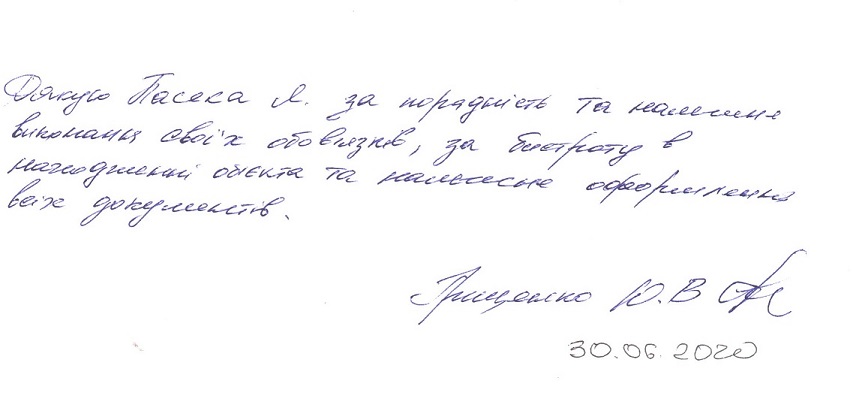 Дякую Пасека Я. за порадність та належне
виконання своїх обов'язків, за бистроту в
находженні обєкта та належне оформлення
всіх документів.
Грищенко Ю.В
30.06.2020